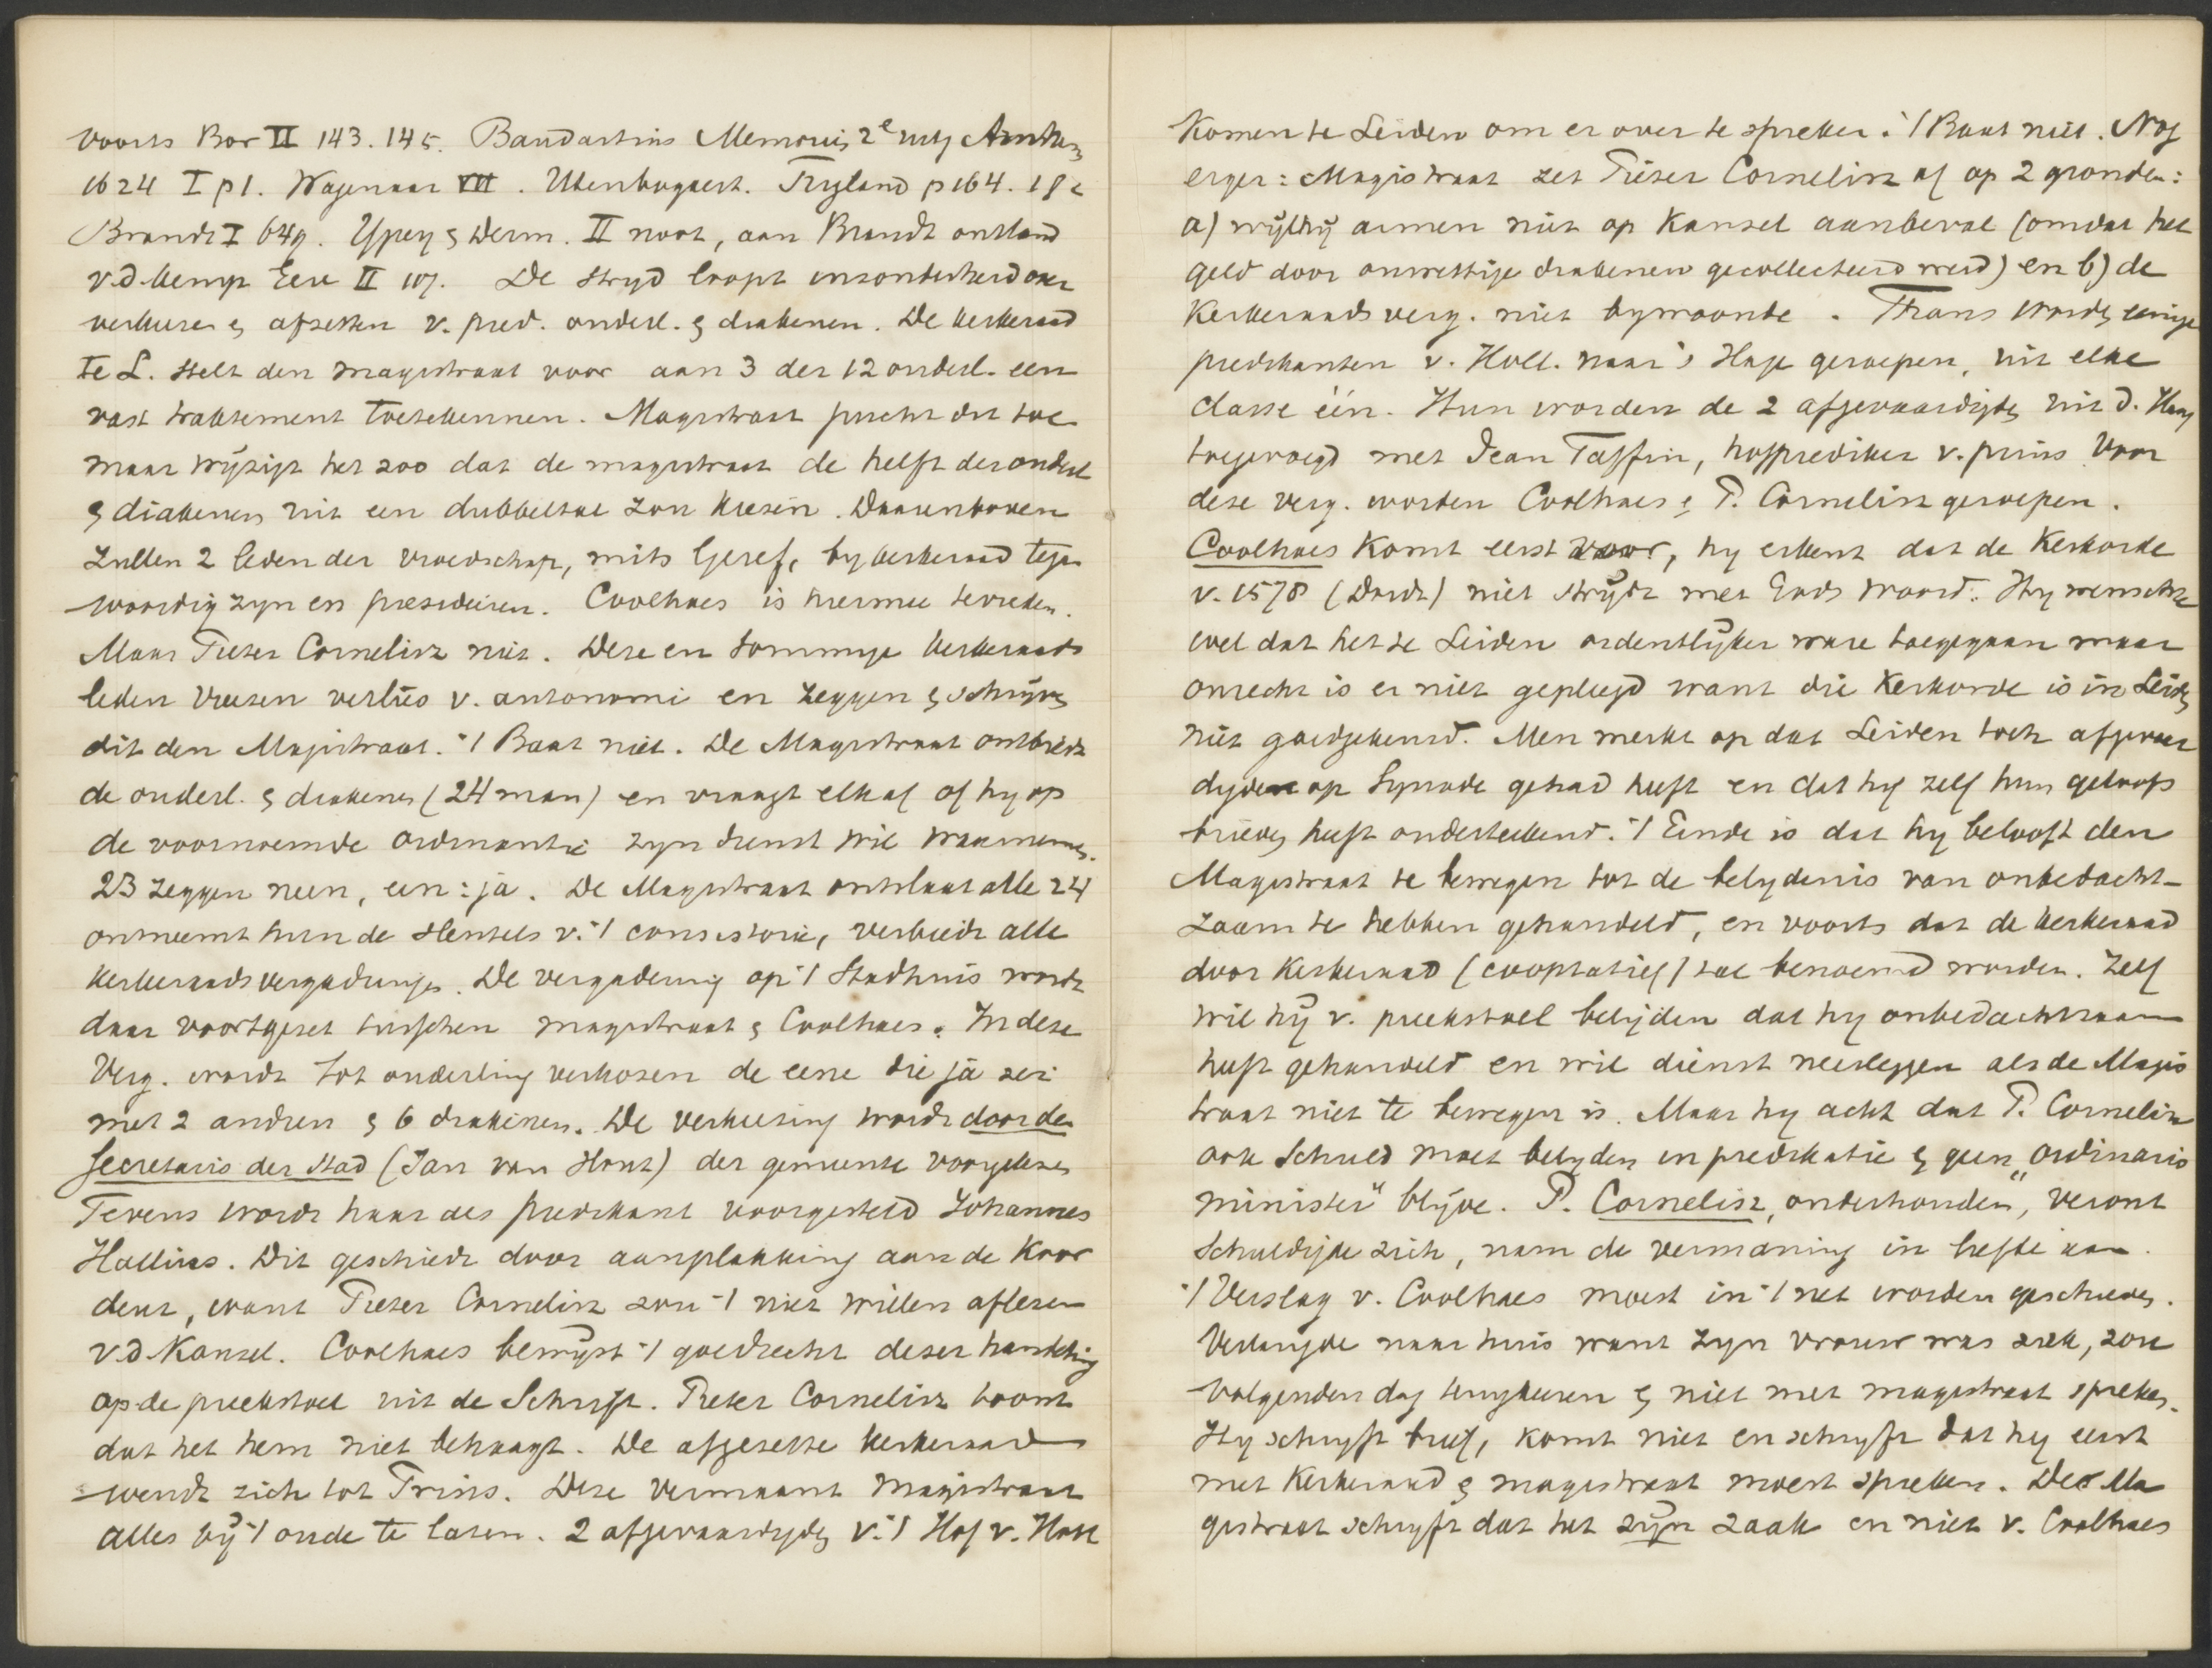 voorts Bor II 143. 145. Baudartius Memories 2e uitg Arnhem
1624 I p 1. Wagenaar VII. Utenbogaert. Trigland p 164. 182
Brandt I 649. Ypey & Derm. II noot, aan Brandt ontleend
v.d. Kemp Eere II 107. De strijd loopt inzonderheid over
verkiezen & afzetten v. pred. ouderl. & diakenen. De kerkeraad
te L. stelt den magistraat voor aan 3 der 12 ouderl. een
vast traktement toetekennen. Magistraat juicht dit toe
maar wijzigt het zoo dat de magistraat de helft der ouderl
& diakenen uit een dubbeltal zou kiezen. Daarenboven
zullen 2 leden der vroedschap, mits Geref, by kerkeraad tegen
woordig zyn en presideeren. Coolhaes is hiermee tevreden.
Maar Pieter Cornelisz niet. Deze en sommige kerkeraads
leden vreezen verlies v. autonomie en zeggen & schrijven
dit den Magistraat. 't Baat niet. De Magistraat ontbiedt
de ouderl. & diakenen (24 man) en vraagt elk af of hy op
de voornoemde ordinantie zyn dienst wil waarnemen.
23 zeggen neen, een: ja. De Magistraat ontslaat alle 24
ontneemt hun de sleutels v. 't consistorie, verbiedt alle
kerkeraadsvergaderingen. De vergadering op 't Stadhuis wordt
daar voortgezet tusschen magistraat & Coolhaes. In deze
Verg. wordt tot ouderling verkozen de eene die ja zei
met 2 andren & 6 diakenen. De verkiezing wordt door den
Secretaris der stad (Jan van Hout) der gemeente voorgelezen
Tevens wordt haar als predikant voorgesteld Johannes
Hallius. Dit geschiedt door aanplakking aan de Koor
deur, want Pieter Cornelisz zou 't niet willen aflezen
v.d. Kansel. Coolhaes bewijst 't goedrecht dezer handeling
op de preekstoel uit de Schrift. Pieter Cornelisz toont
dat het hem niet behaagt. De afgezette kerkeraad
wendt zich tot Prins. Deze vermaant Magistraat
alles bij 't oude te laten. 2 afgevaardigden v. 't Hof v. Holl
Komen te Leiden om er over te spreken. 't Baat niet. Nog
erger: Magistraat zet Pieter Cornelisz af op 2 gronden:
a) wijl hij armen niet op Kansel aanbeval (omdat het
geld door onwettige diakenen gecollecteerd werd) en b) de
Kerkeraads verg. niet bywoonde. Thans worden eenige
predikanten v. Holl. naar 's Hage geroepen, uit elke
classe één. Hun worden de 2 afgevaardigden uit d. Haag
toegevoegd met Jean Taffin, hofprediker v. prins. Voor
deze verg. worden Coolhaes & P. Cornelisz geroepen.
Coolhaes komt eerst voor, hy erkent dat de Kerkorde
v. 1578 (Dordt) niet strijdt met Gods woord. Hy wenschte
wel dat het te Leiden ordentlijker ware toegegaan maar
onrecht is er niet gepleegd want die Kerkorde is in Leiden
niet goedgekeurd. Men merkt op dat Leiden toch afgevaar
digden op Synode gehad heeft en dat hy zelf hun geloofs
brieven heeft onderteekend. 't Einde is dat hy belooft den
Magistraat te bewegen tot de belydenis van onbedacht-
zaam te hebben gehandeld, en voorts dat de kerkeraad
door Kerkeraad (cooptatief) zal benoemd worden. Zelf
wil hij v. preekstoel belijden dat hy onbedachtzaam
heeft gehandeld en wil dienst neerleggen als de Magis
traat niet te bewegen is. Maar hy acht dat P. Cornelisz
ook schuld moet belyden in predikatie & geen „ordinaris
minister" blijve. P. Cornelisz, „onderhouden", veront
schuldigde zich, nam de vermaning in liefde aan.
't Verslag v. Coolhaes moest in 't net worden geschreven.
Verlangde naar huis want zyn vrouw was ziek, zou
volgenden dag terugkeeren & niet met magistraat spreken.
Hy schryft brief, komt niet en schryft dat hy eerst
met Kerkeraad & magistraat moest spreken. De Ma
gistraat schryft dat het zijn zaak en niet v. Coolhaes